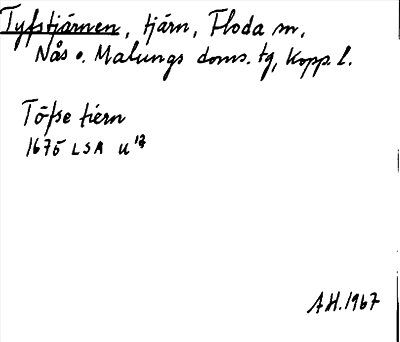 Tyfstjärnen, tjärn, Floda sn,
Nås o. Malungs doms. tg, Kopp. l.
Töfse tiern
1675 LSA U 17
AH. 1967